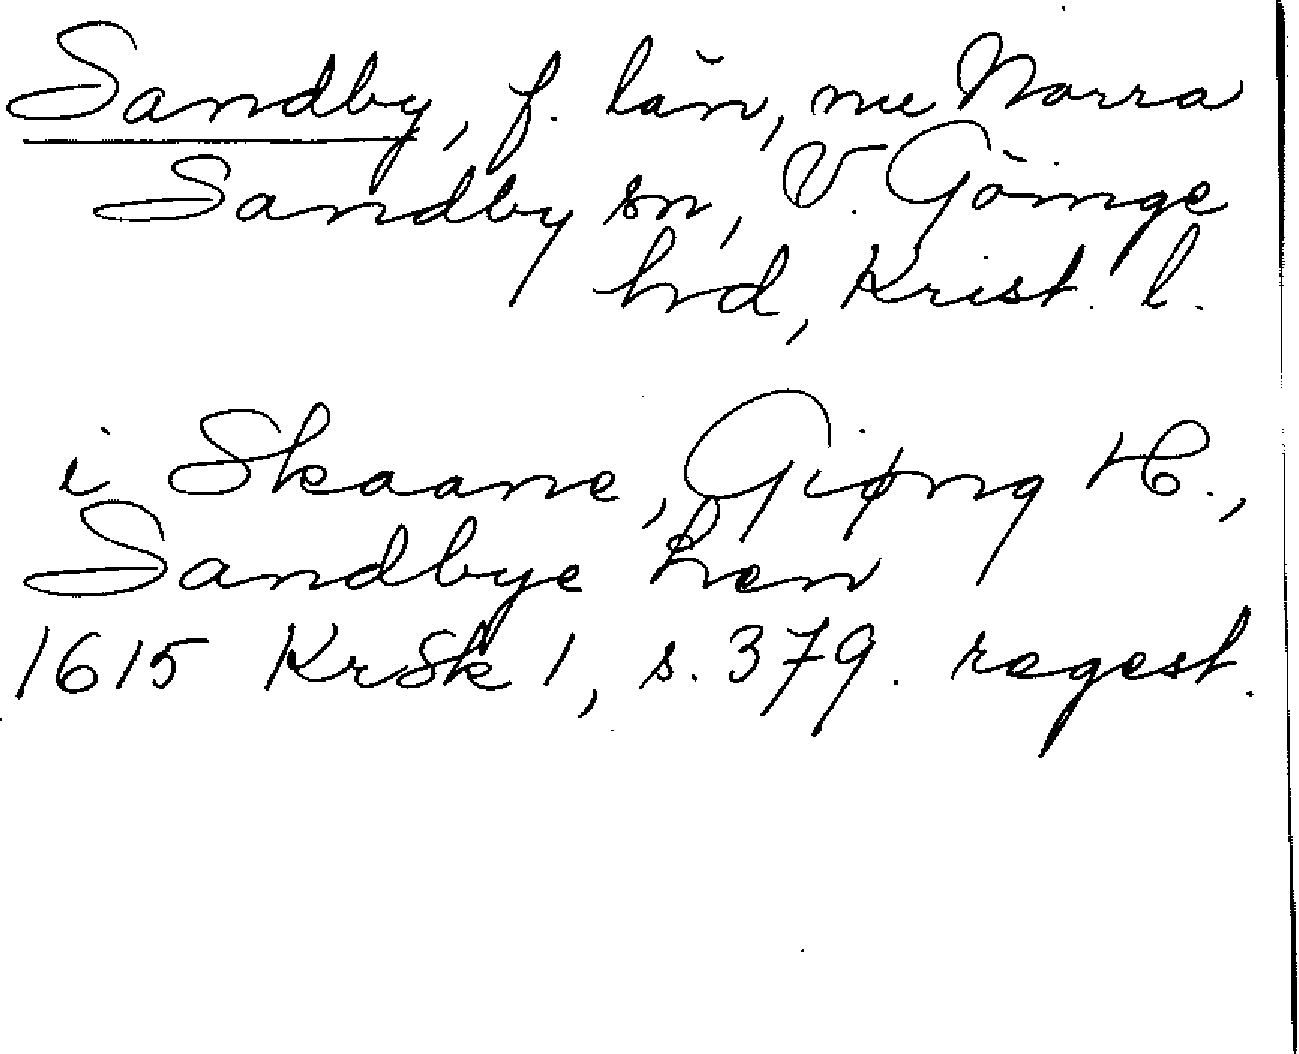 Sandby, f. län, nu Norra
Sandby sn, V. Göinge
hrd, Krist. l.
i Skaane, Giøng H.,
Sandbye Len
1615 KrSk 1, s. 379. regest.